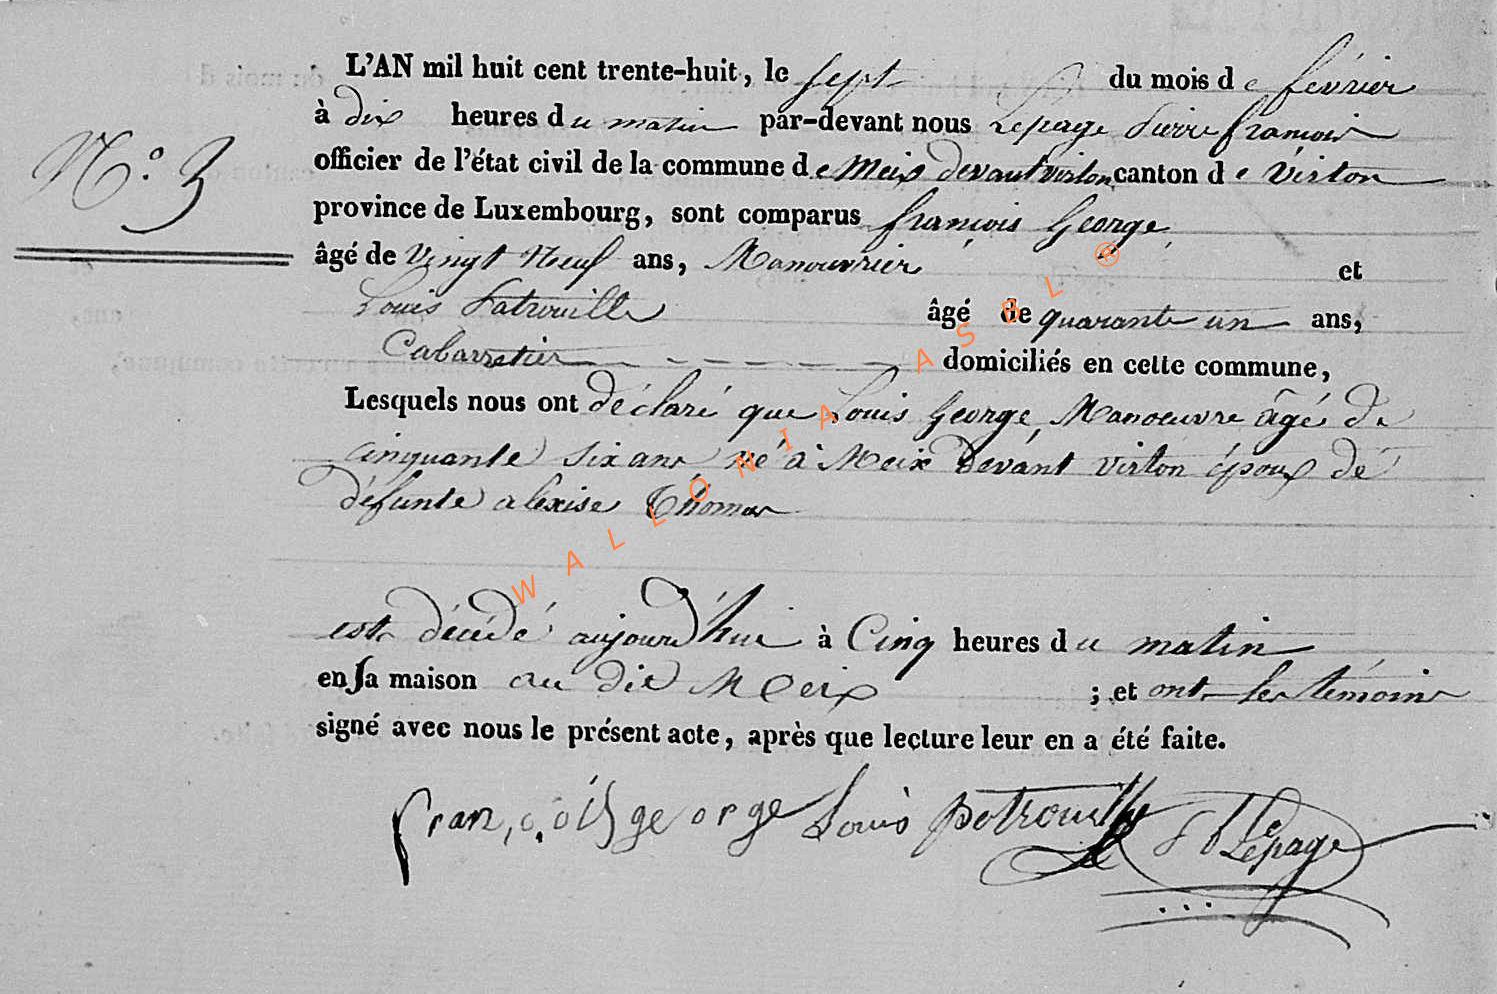 L'AN mil huit cent trente-huit, le sept du mois de février
à dix heures du matin par-devant nous Lepage Pierre françois
N.° 3
officier de l'état civil de la commune de Meix devant virton canton de Virton
province de Luxembourg, sont comparus françois George
âgé de Vingt Neuf ans, Manouvrier et
Louis Patrouille âgé de quarante un ans,
Cabarretier domiciliés en cette commune,
Lesquels nous ont déclaré que Louis George Manoeuvre âgé de
cinquante six ans né à Meix devant virton époux de
défunte alexise Thomas
est décédé aujourd'hui à Cinq heures du matin
en sa maison au dit Meix ; et ont les témoins
signé avec nous le présent acte, après que lecture leur en a été faite.
françois george Louis patrouille Lepage
WALLONIA ASBL ®